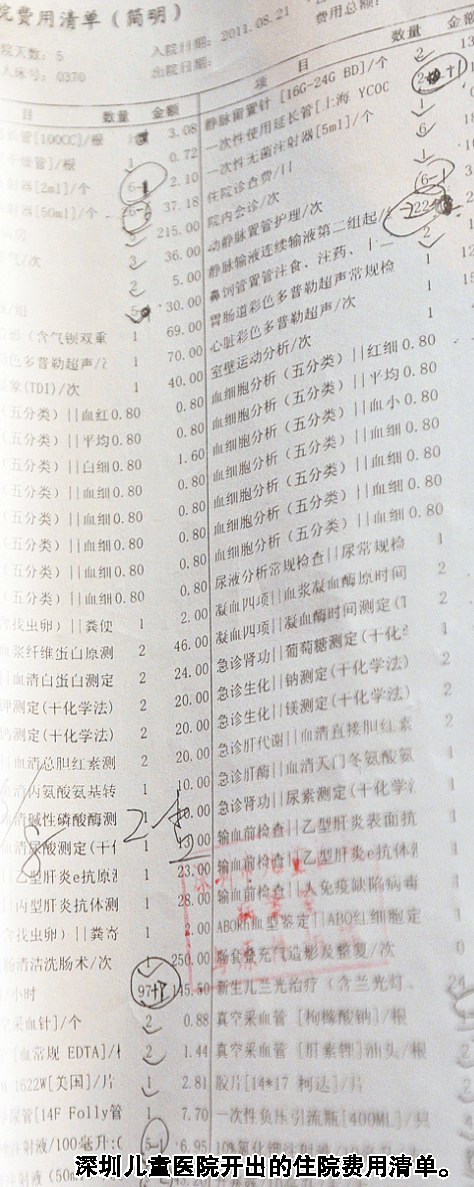 院费用清单（简明）
院天数: 5
入院日期: 2011.08.21
费用总额:
人床号: 0370
出院日期:
目 数量 金额
项 目 数量 金额
长管[100CC]/根 3.08
静脉留置针 [16G-24G BD]/个 2
管]/根 1 0.72
一次性使用延长管[上海 YCOC
射器[2ml]/个 6-1 2.10
一次性无菌注射器[5ml]/个 1
射器[50ml]/个 37.18
住院诊查费/日 6
215.00
院内会诊/次 1
气/次 3 36.00
动静脉置管护理/次 6-1
2 5.00
静脉输液连续输液第二组起/
/组 30.00
鼻饲管置管注食、注药、十二 2
形（含气钡双重 1 69.00
胃肠道彩色多普勒超声常规检 1
色多普勒超声/ 1 70.00
心脏彩色多普勒超声/次 1
象(TDI)/次 1 40.00
室壁运动分析/次 1
（五分类）||血红 0.80 0.80
血细胞分析（五分类）||红细 0.80
（五分类）||平均 0.80 0.80
血细胞分析（五分类）||平均 0.80
（五分类）||白细 0.80 1.60
血细胞分析（五分类）||血小 0.80
（五分类）||血细 0.80 0.80
血细胞分析（五分类）||血细 0.80
（五分类）||血细 0.80 0.80
血细胞分析（五分类）||血细 0.80
（五分类）||血细 0.80 0.80
血细胞分析（五分类）||血细 0.80
（五分类）||血细 0.80 0.80
血细胞分析（五分类）||血细 0.80
（五分类）||血细 0.80 0.80
尿液分析常规检查||尿常规检 1
含找虫卵）||粪便 1 2.00
凝血四项||血浆凝血酶原时间 2
浆纤维蛋白原测 2 46.00
凝血四项||凝血酶时间测定(T 2
||血清白蛋白测定 2 24.00
急诊肾功||葡萄糖测定(干化学 1
钾测定(干化学法) 2 20.00
急诊生化||钠测定(干化学法) 2
钙测定(干化学法) 2 20.00
急诊生化||镁测定(干化学法) 2
||血清总胆红素测 2 20.00
急诊肝代谢||血清直接胆红素 2
清丙氨酸氨基转 1 10.00
急诊肝酶||血清天门冬氨酸氨 1
清碱性磷酸酶测
急诊肾功||尿素测定(干化学法 1
清尿酸测定(干化
输血前检查||乙型肝炎表面抗 1
||乙型肝炎e抗原测 1 23.00
输血前检查||乙型肝炎e抗体测 1
||丙型肝炎抗体测 1 28.00
输血前检查||人免疫缺陷病毒 1
含找虫卵）||粪寄 1 2.00
ABORh血型鉴定||ABO红细胞定 1
肠清洁洗肠术/次 1 250.00
肠套叠充气造影及整复/次 0
/小时 97+1 145.50
新生儿蓝光治疗（含兰光灯、 24
空采血针]/个 2 0.88
真空采血管 [枸橼酸钠]/根
[血常规 EDTA]/ 2 1.44
真空采血管 [肝素锂]油头/根 2
1622W[美国]/片 1 2.81
胶片[14*17 柯达]/片
尿管[14F Folly管 1 7.70
一次性负压引流瓶[400ML]/只
注射液/100毫升:( 5-1 6.95
射液（50m
深圳儿童医院开出的住院费用清单。